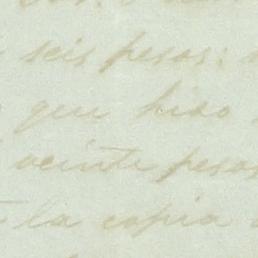 seis pesos:
que hiso
veinte pesos
la copia